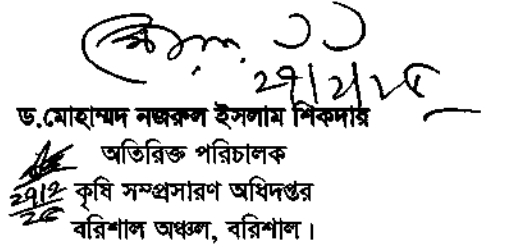 ২৭/২/২৫
ড.মোহাম্মদ নজরুল ইসলাম শিকদার
অতিরিক্ত পরিচালক
২৭/২
২৫
কৃষি সম্প্রসারণ অধিদপ্তর
বরিশাল অঞ্চল, বরিশাল।